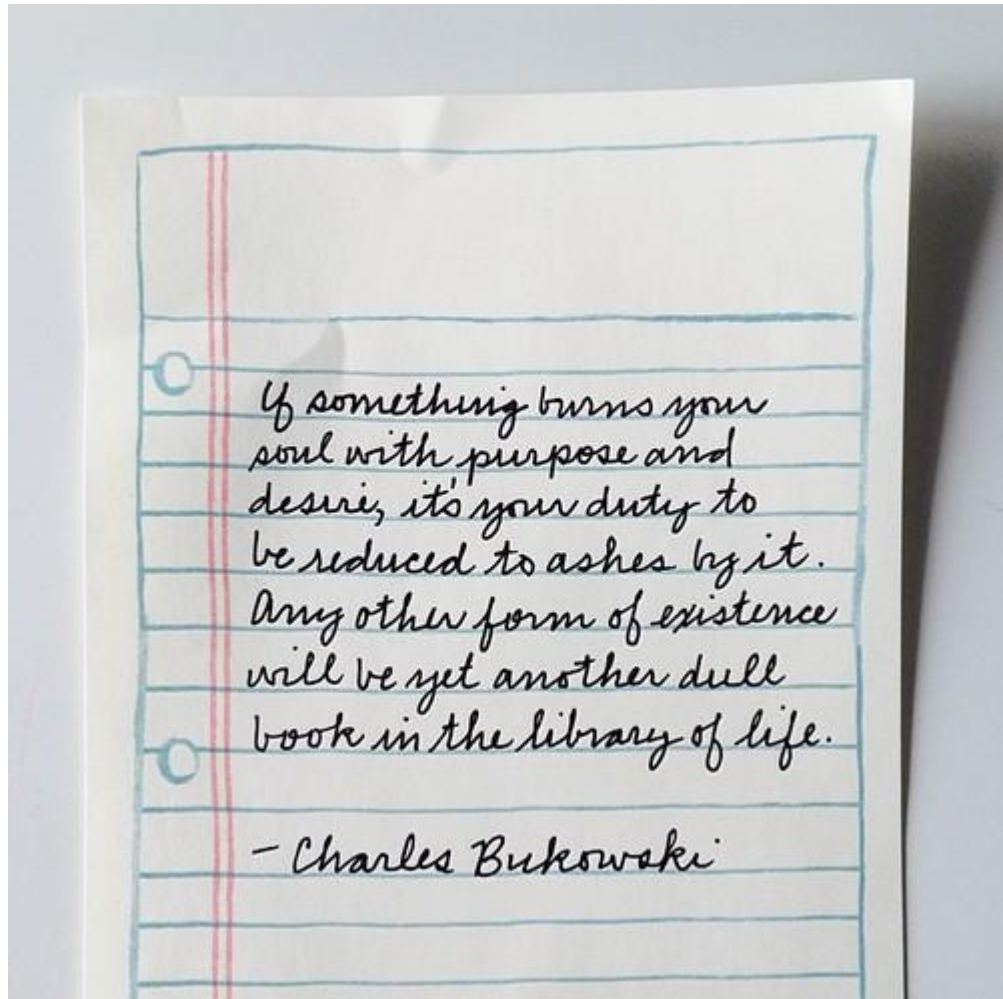 If something burns your
soul with purpose and
desire, it's your duty to
be reduced to ashes by it.
Any other form of existence
will be yet another dull
book in the library of life.
- Charles Bukowski